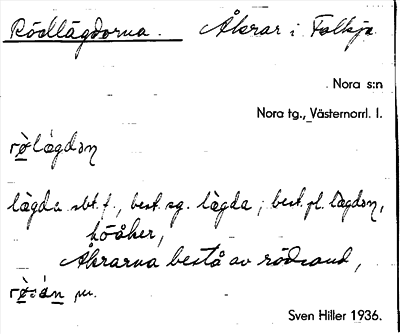 Rödlägdorna. Åkrar i Falkja
Nora s:n
Nora tg., Västernorrl. l.
rò̱lägdan
lägda sbt. f., best. sg. lägda; best. pl. lägdan,
höåker,
Åkrarna bestå av rödsand,
Sven Hiller 1936.